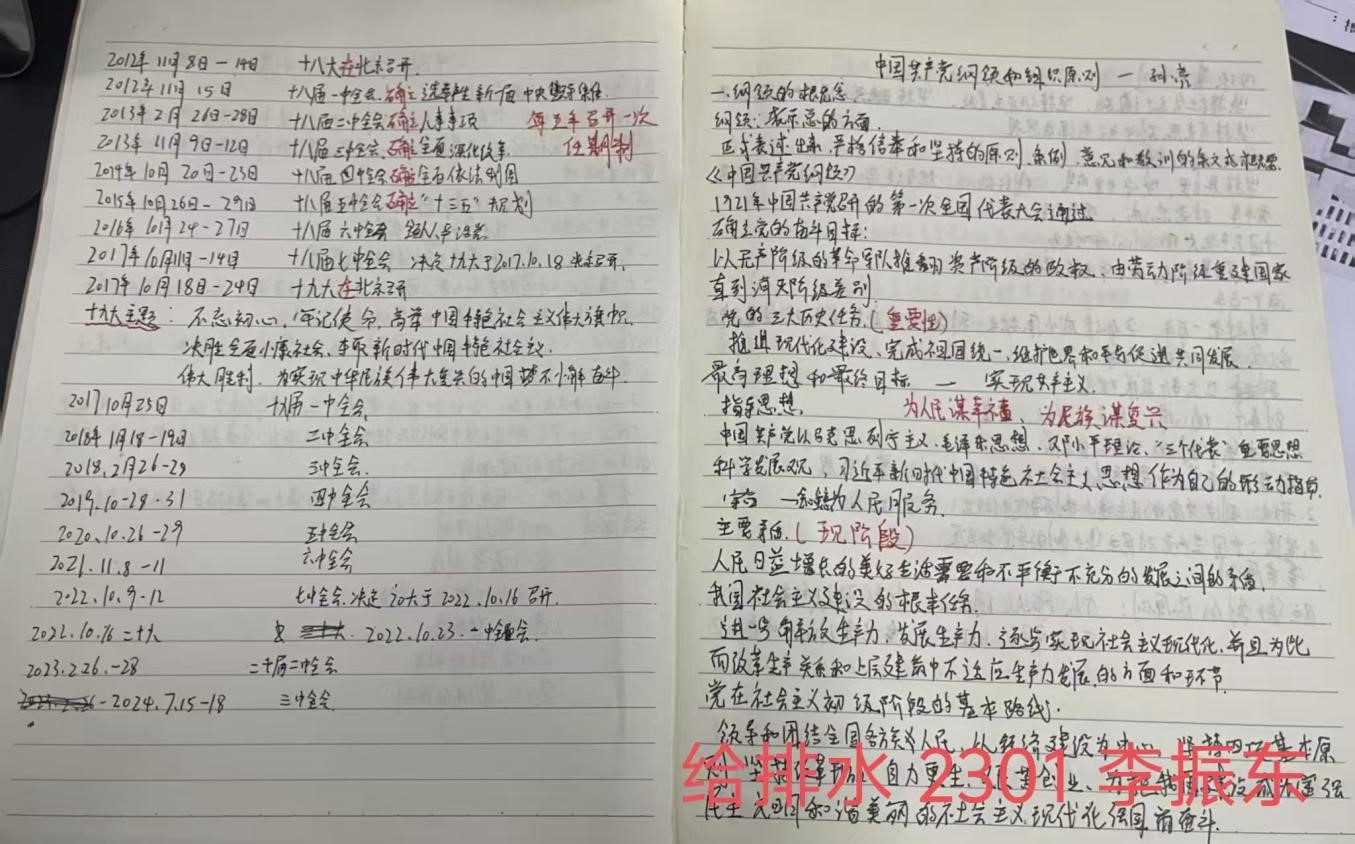 2012年11月8日一14日 十八大在北京召开.
2012年11月15日 十八届一中全会.确立选举产生新一届中央
2013年2月26日-28日 十八届二中全会确立人事事项 每五年召开一次
2013年11月9日-12日 十八届三中全会、确立全面深化改革. 任期制
2014年10月20日-23日 十八届四中全会确立全面依法治国
2015年10月26日-29日 十八届五中全会确立"十三五"规划
2016年10月24-27日 十八届六中全会
2017年10月11日-14日 十八届七中全会 决定十九大于2017.10.18 召开.
2017年10月18日-24日 十九大在北京召开
十九大主题: 不忘初心,牢记使命,高举中国特色社会主义伟大旗帜.
决胜全面小康社会、夺取新时代中国特色社会主义.
伟大胜利.为实现中华民族伟大复兴的中国梦不懈奋斗.
2017 10月25日 十九届一中全会
2018年1月18-19日 二中全会
2018.2月26-28 三中全会.
2019.10-28-31 四中全会
2020.10.26-29 五中全会
2021.11.8-11 六中全会
2022.10.9-12 七中全会.决定 20大于2022.10.16召开.
2022.10.16二十大 2022.10.23.一中全会.
2023.2.26.-28 二十届二中全会
-2024.7.15-18 三中全会
中国共产党纲领和组织原则 一 孙亮
一、纲领的概念
纲领:表示总的方面.
正式表述出来,严格信奉和坚持的原则、条例、意见和教训的条文或概要
《中国共产党纲领》
1921年中国共产党召开的第一次全国代表大会通过.
确立党的奋斗目标:
以无产阶级的革命军队推翻资产阶级的政权、由劳动阶级重建国家
直到消灭阶级差别
党的三大历史任务.(重要性)
推进现代化建设、完成祖国统一、维护世界和平与促进共同发展.
最高理想和最终目标 一 实现共产主义.
指导思想. 为人民谋幸福、为民族谋复兴
中国共产党以马克思列宁主义、毛泽东思想、邓小平理论、"三个代表"重要思想
科学发展观、习近平新时代中国特色社会主义思想作为自己的行动指南.
宗旨 为人民服务.
主要矛盾.(现阶段)
人民日益增长的美好生活需要和不平衡不充分的发展之间的矛盾.
我国社会主义建设的根本任务.
进一步解放生产力,发展生产力.逐步实现社会主义现代化.并且为此
而改革生产关系和上层建筑中不适应生产力发展.的方面和环节.
党在社会主义初级阶段的基本路线.
领导和团结全国各族人民、以经济建设为中心、坚持四项基本原
则、坚持改革开放、自力更生、艰苦创业、为把我国建设成为富强
民主文明和谐美丽的社会主义现代化强国而奋斗.
给排水 2301 李振东